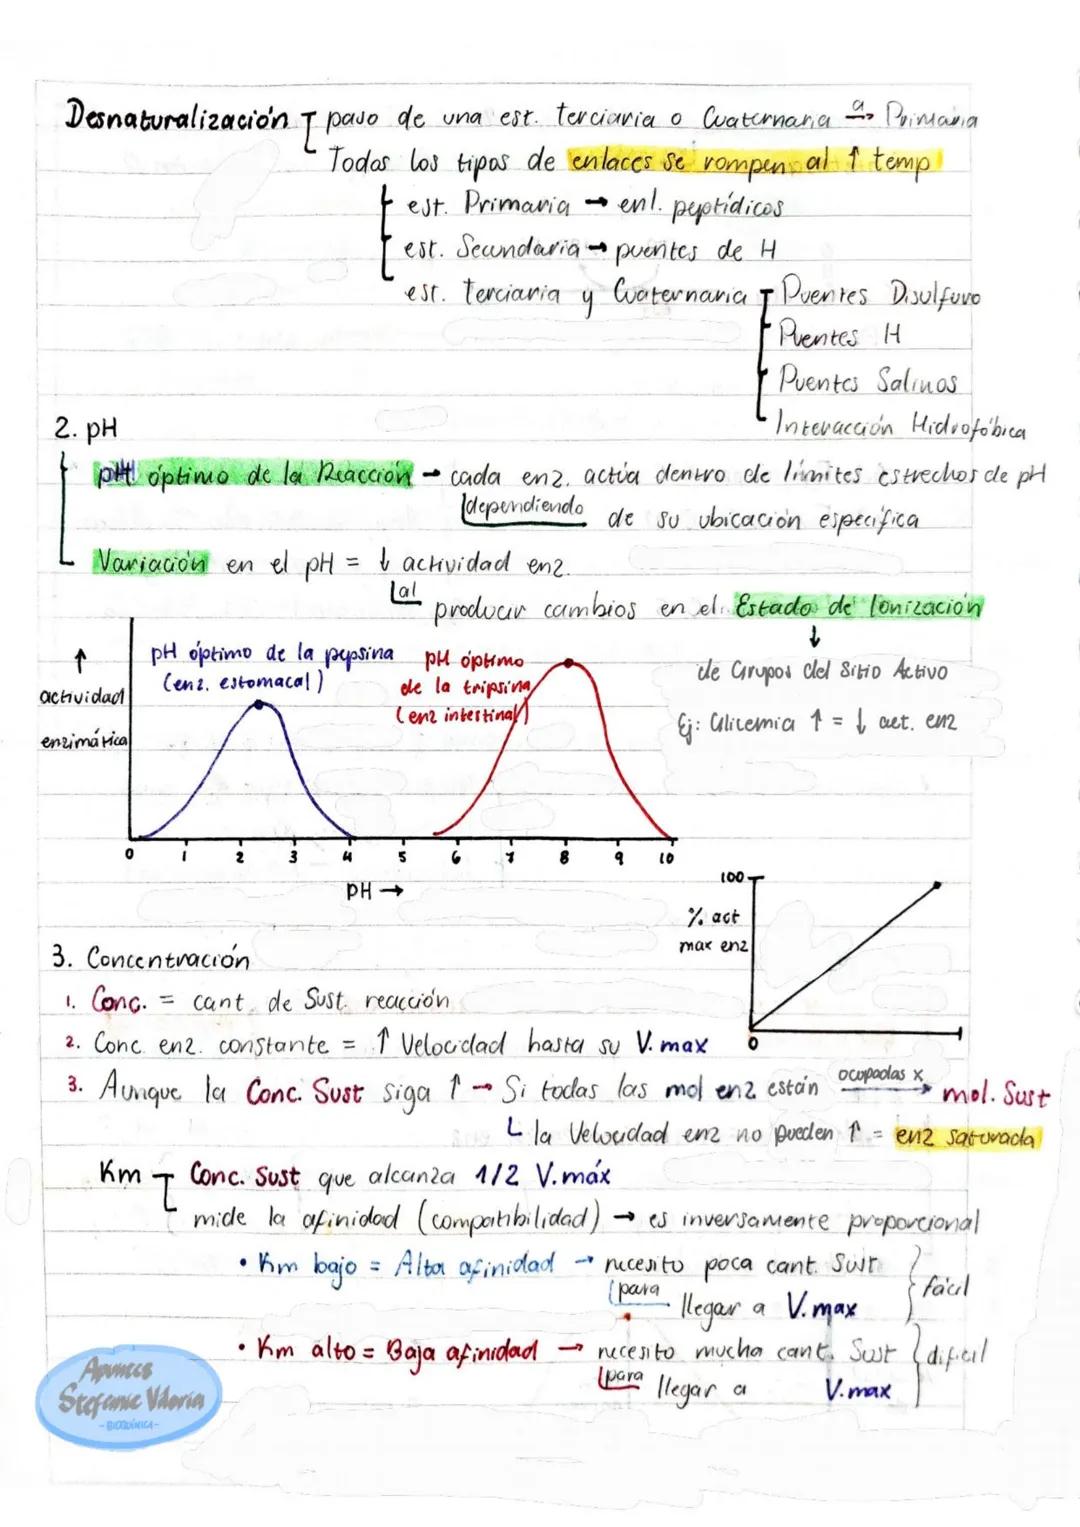 Desnaturalización paso de una est. terciaria o Cuaternaria a→ Primaria
Todos los tipos de enlaces se rompen al ↑ temp
est. Primaria → enl. peptídicos
est. Secundaria → puentes de H
est. terciaria y Cuaternaria Puentes Disulfuro
Puentes H
Puentes Salinos
Interacción Hidrofóbica
2. pH
pH óptimo de la Reacción → cada enz. actúa dentro de límites estrechos de pH
dependiendo de su ubicación específica
Variación en el pH = ↓ actividad enz.
al producir cambios en el Estado de Ionización
↓
de Grupos del Sitio Activo
Ej: Glicemia ↑ = ↓ act. enz
↑
actividad
enzimática
pH óptimo de la pepsina
(enz. estomacal)
pH óptimo
de la tripsina
(enz intestinal)
0 1 2 3 4 5 6 7 8 9 10
pH →
100
% act
max enz
0
3. Concentración
1. Conc. = cant. de Sust. reacción
2. Conc. enz. constante = ↑ Velocidad hasta su V. max
3. Aunque la Conc. Sust siga ↑ → Si todas las mol enz están ocupadas x mol. Sust
la Velocidad enz no pueden ↑ = enz saturada
Km Conc. Sust que alcanza 1/2 V. máx
mide la afinidad (compatibilidad) → es inversamente proporcional
• Km bajo = Alta afinidad → necesito poca cant. Sust
para llegar a V. max
fácil
• Km alto = Baja afinidad → necesito mucha cant. Sust
para llegar a V. max
difícil
Apuntes
Stefanie Viloria
-BIOQUÍMICA-